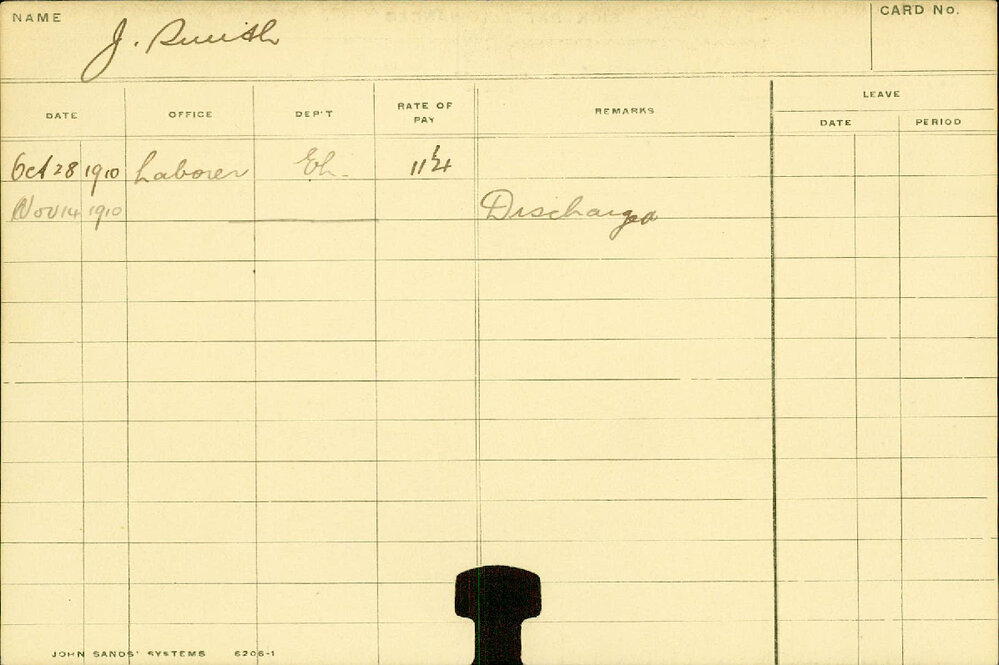 NAME J. Smith CARD No.
DATE OFFICE DEP'T RATE OF PAY REMARKS LEAVE
DATE PERIOD
Oct 28 1910 Laborer 11/4
Nov 14 1910 Discharged
JOHN SANDS' SYSTEMS 6206-1